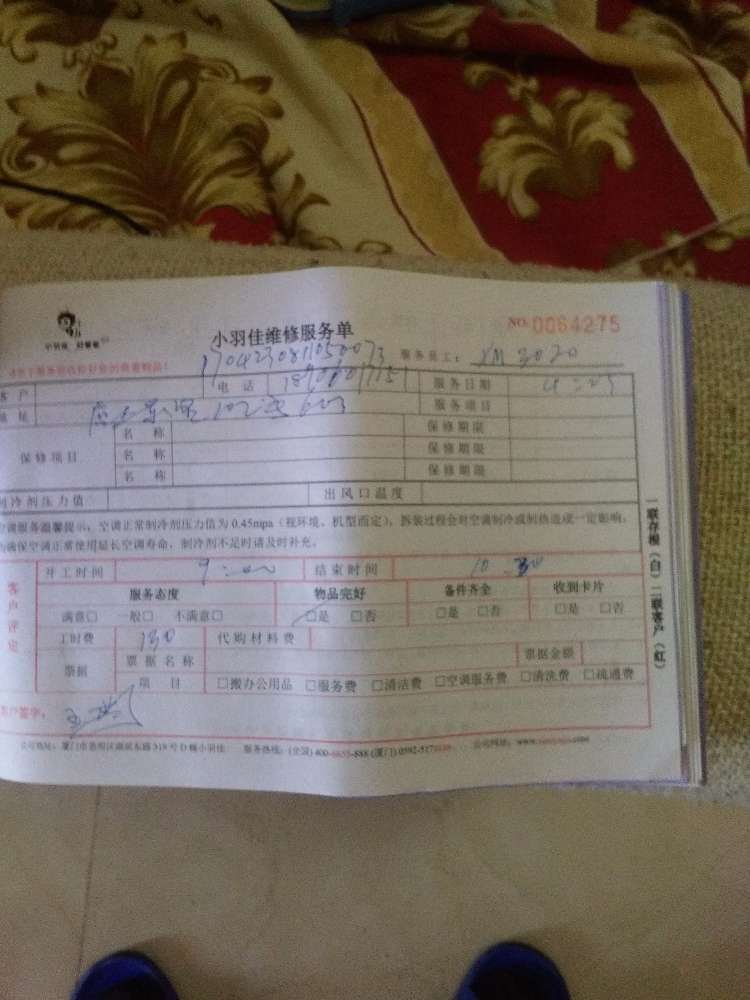 小羽佳维修服务单
NO. 0064275
小羽佳 好管家
170423081050073
服务员工： XM 3020
客户 电话 服务日期 4.23
地址 102 603 服务项目
保修项目 名称 保修期限
名称 保修期限
名称 保修期限
制冷剂压力值 出风口温度
空调服务温馨提示：空调正常制冷剂压力值为0.45mpa（视环境、机型而定），拆装过程会对空调制冷或制热造成一定影响，
为确保空调正常使用延长空调寿命，制冷剂不足时请及时补充。
客户评定
开工时间 9:00 结束时间 10:30
服务态度 物品完好 备件齐全 收到卡片
满意□ 一般□ 不满意□ □是 □否 □是 □否 □是 □否
工时费 130 代购材料费
票据 票据名称 票据金额
项目 □搬办公用品 □服务费 □清洁费 □空调服务费 □清洗费 □疏通费
客户签字：
公司地址：厦门市思明区湖滨东路319号D幢小羽佳 服务热线：(全国)400-8855-888 (厦门)0592-517 公司网址：www.
一联存根（白）二联客户（红）